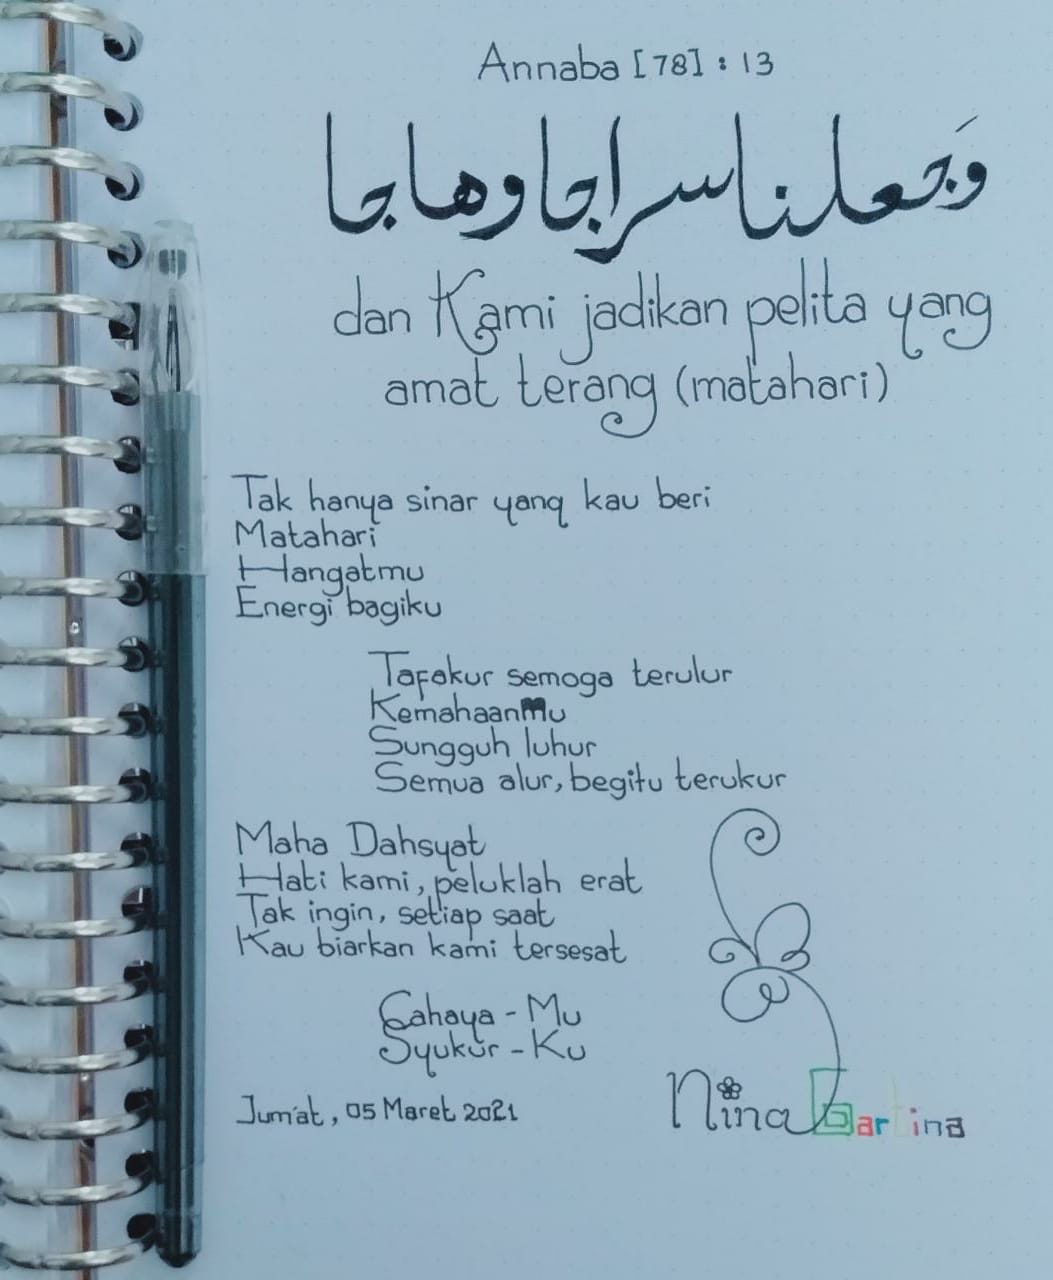 Annaba [78] : 13
وَجعلنا سراجا وهاجا
dan Kami jadikan pelita yang
amat terang (matahari)
Tak hanya sinar yang kau beri
Matahari
Hangatmu
Energi bagiku
Tafakur semoga terulur
KemahaanMu
Sungguh luhur
Semua alur, begitu terukur
Maha Dahsyat
Hati kami, peluklah erat
Tak ingin, setiap saat
Kau biarkan kami tersesat
Cahaya - Mu
Syukur - Ku
Jum'at, 05 Maret 2021
Nina Gartina